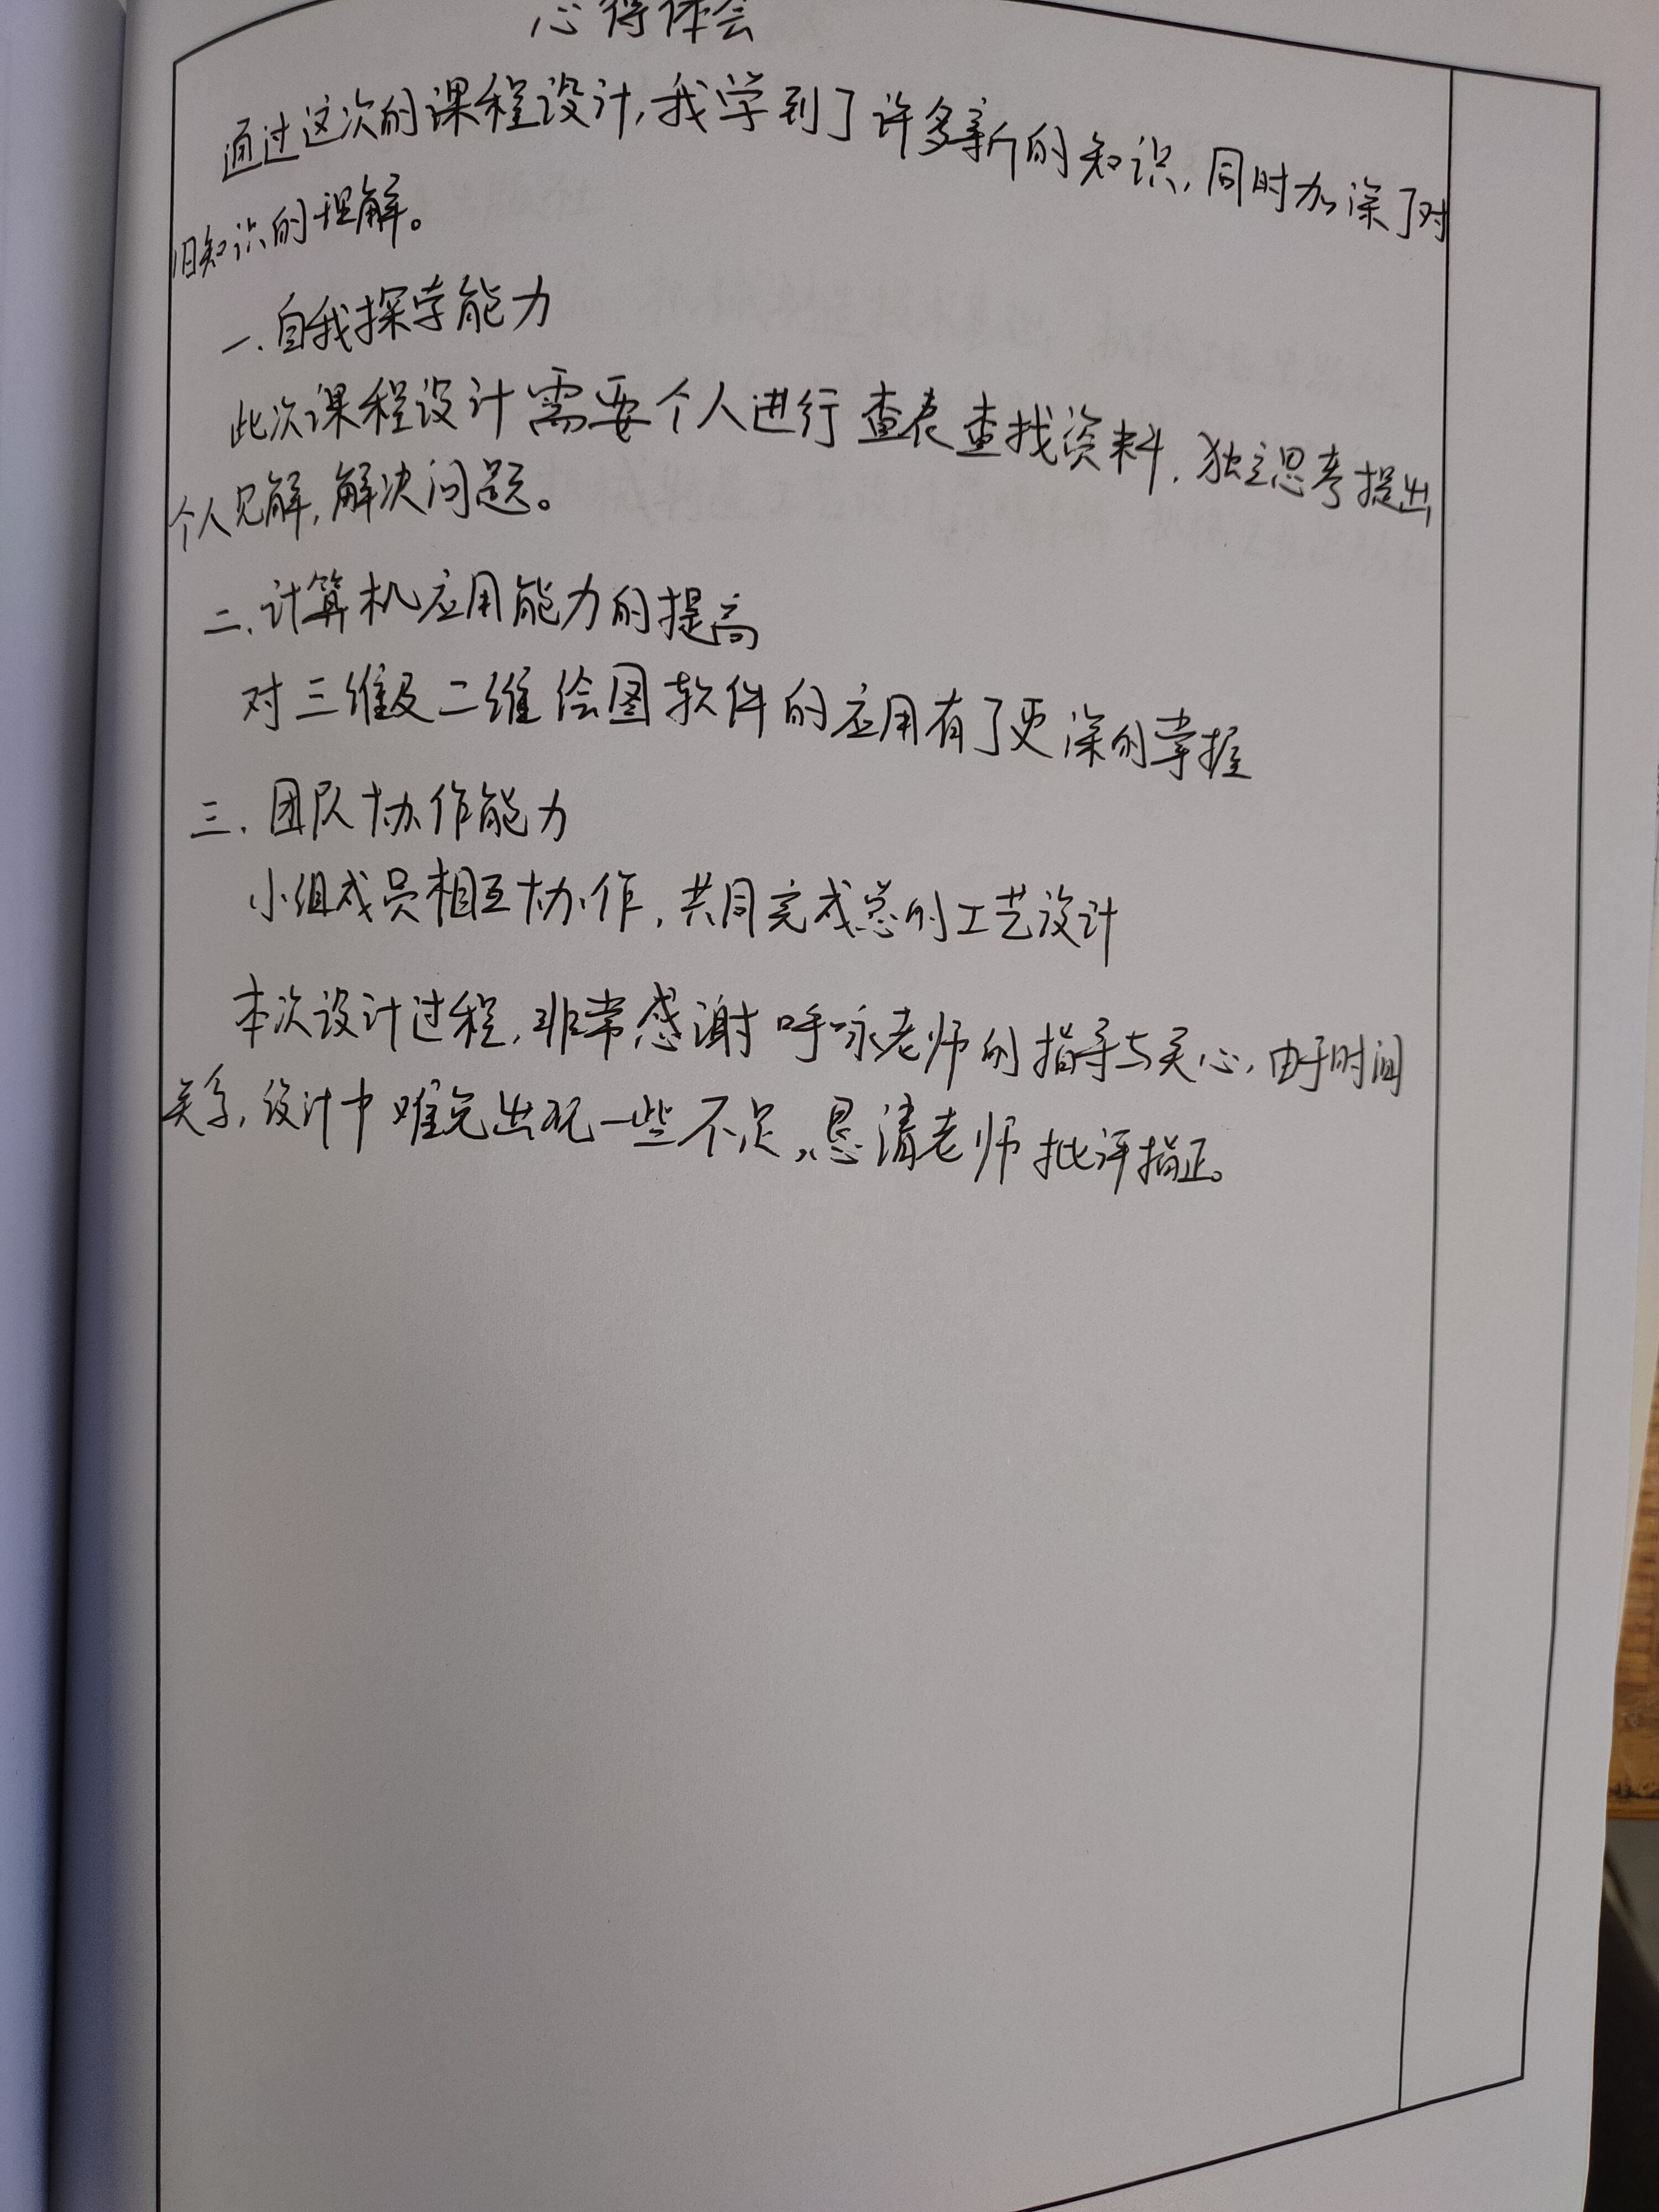 心得体会
通过这次的课程设计,我学到了许多新的知识,同时加深了对
旧知识的理解。
一.自我探学能力
此次课程设计需要个人进行查表查找资料,独立思考提出
个人见解,解决问题。
二.计算机应用能力的提高
对三维及二维绘图软件的应用有了更深的掌握
三.团队协作能力
小组成员相互协作,共同完成总的工艺设计
本次设计过程,非常感谢呼咏老师的指导与关心,由于时间
关系,设计中难免出现一些不足,恳请老师批评指正。